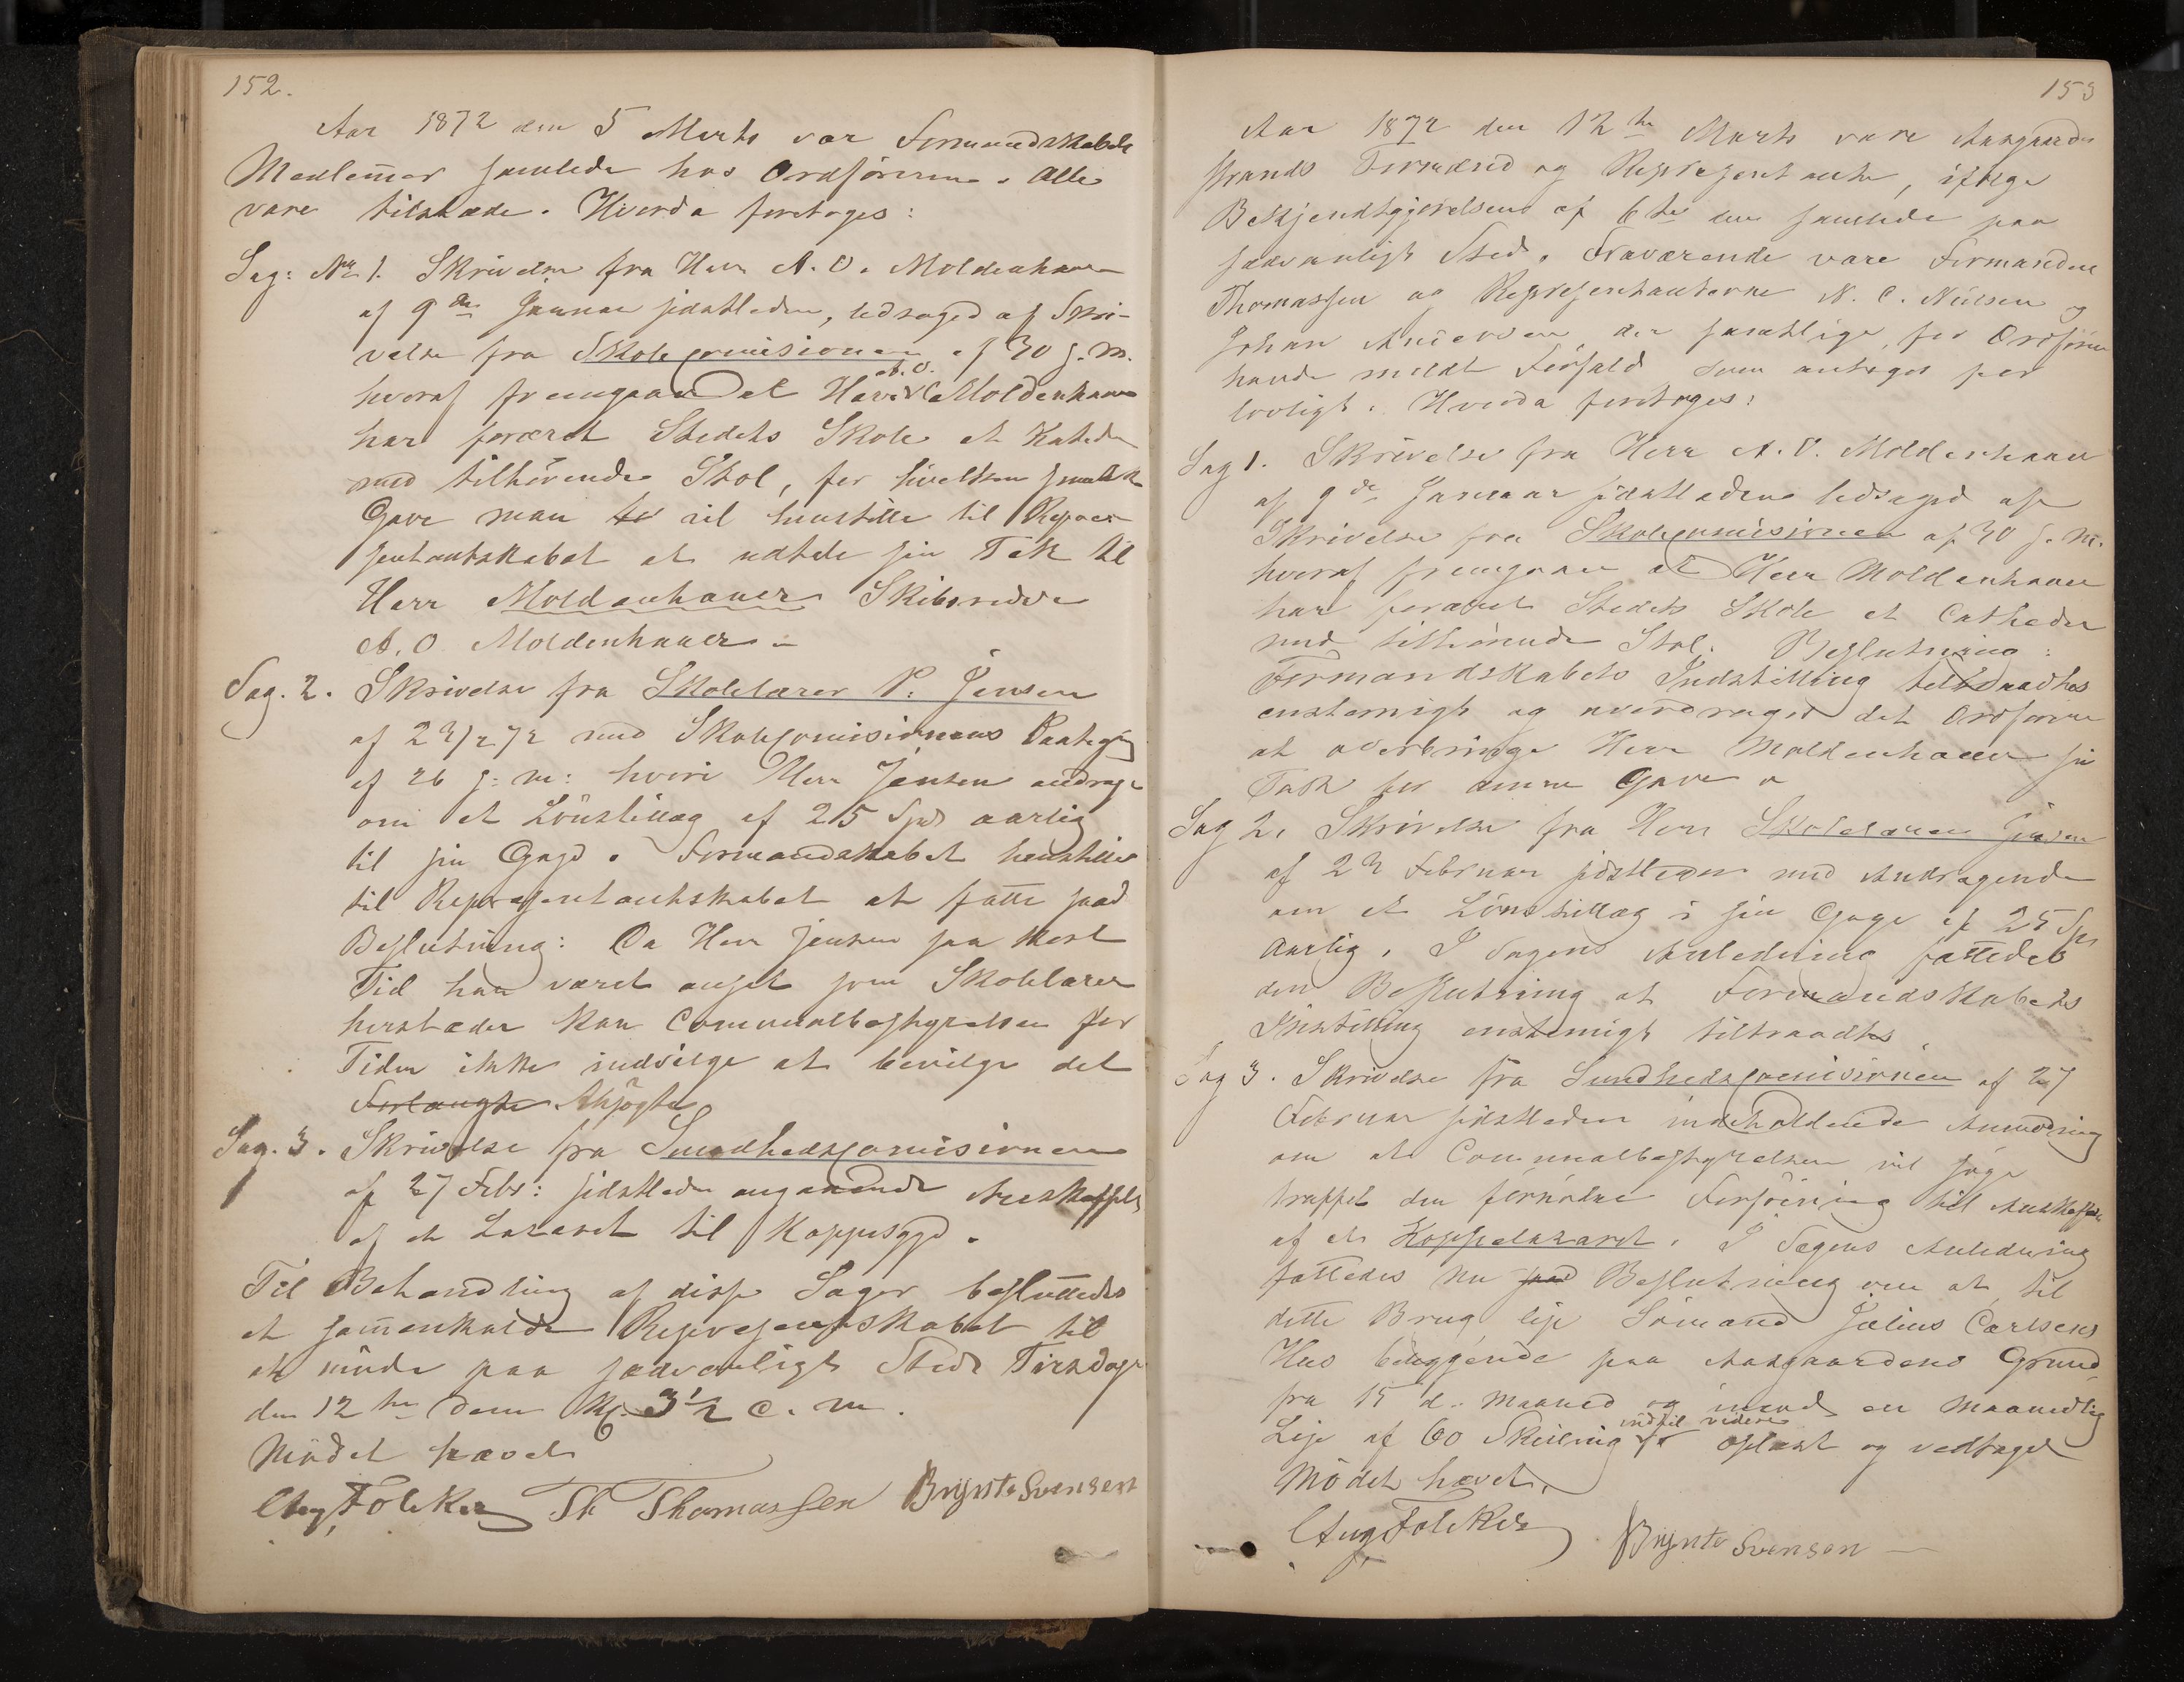 152.
Aar 1872 den 5 Marts var Formandskabets
Medlem̄er samlede hos Ordføreren. Alle
vare tilstæde. Hvorda foretoges:
Sag: No 1. Skrivelse fra Herr A. O. Moldenhauer
af 9de Januar sidstleden, ledsaged af Skri-
velse fra Skolecomisionen af 30 s. M.
hveraf fremgaar at Herr A. O. Moldenhauer
har foræret Stedets Skole et Kateder
med tilhørende Stol, for hvilken smukke
Gave man vil henstille til Repræ-
sentantskabet at udtale sin Tak til
Herr Moldenhauer Skibsreder
A. O. Moldenhauer.
Sag. 2. Skrivelse fra Skolelærer P. Jensen
af 23/2 72 med Skolecomisionens Paategn
af 26 s: m: hvori Herr Jensen andrage
om et Lönstillæg af 25 Spd aarlig
til sin Gage. Formandskabet henstiller
til Repræsentantskabet at fatte saad
Beslutning: Da Herr Jensen saa kort
Tid har været ansat som Skolelærer
herstæder kan Communalbestyrelsen for
Tiden ikke indvilge at bevilge det
Forlangte Ansögte
Sag. 3. Skrivelse fra Sundhedscomisionen
af 27 Febr: sidstleden angaaende Anskaffels
af et Lazaret til Koppesyge.
Til Behandling af disse Sager besluttedes
at sam̄enkalde Representskabet til
at möde paa sædvanligt Sted Tirsdage
den 12te dem Kl. 3½ e. m.
Mödet hævet
Aug. Foleker Th Thomassen Brynte Svensen
153
Aar 1872 den 12te Marts vare Aasgaard-
strands Formænd og Repræsentanter, ifølge
Bekjendtgjørelsens af 6te dem samlede paa
sædvanligt Sted. Fraværende vare Formanden
Thomassen og Repræsentanterne N. C. Nielsen og
Johan Andersen, der samtlige, for Ordförer
havde meldt Forfald som antoges for
lovligt. Hvorda foretoges:
Sag 1. Skrivelse fra Herr A. O. Moldenhauer
af 9de Januar sidstleden ledsaged af
Skrivelse fra Skolecomisionen af 30 s. M.
hveraf fremgaar at Herr Moldenhauer
har foræret Stedets Skole et Catheder
med tilhørende Stol. Beslutning:
Formandskabets Indstilling tiltraadtes
enstemigt og overdroges det Ordföreren
at overbringe Herr Moldenhauer sin
Tak for denne Gave
Sag 2. Skrivelse fra Herr Skolelærer Jensen
af 23 Februar sidstleden med Andragende
om et Lönstillæg i sin Gage af 25 Spd
aarlig. I Sagens Anledning fattedes
den Beslutning at Formandskabets
Instilling enstemigt tiltraadtes
Sag 3. Skrivelse fra Sundhedscomisionen af 27
Februar sidstleden indeholdende Anmodning
om at Communalbestyrelsen vil söge
truffet den fornødne Forföining til Anskaffelse
af et Koppelazaret. I Sagens Anledning
fattedes nu saad Beslutning om at til
dette Brug leje Sömand Julius Carlsens
Hus beliggende paa Aasgaardens Grund
fra 15 d. Maaned og imod en maanedlig
Leje af 60 Skilling indtil videre oplæst og vedtaget
Mödet hævet.
Aug Foleker Brynte Svensen